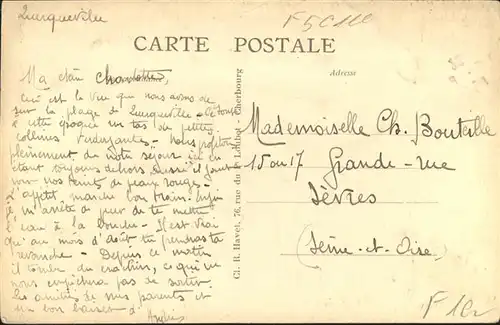 Querqueville
CARTE POSTALE
Adresse
Ma chère Charlotte,
Ceci est la vue que nous avons de
sur la plage de Querqueville
à cette époque un tas de petites
collines verdoyantes. Nous profitons
pleinement de notre séjour ici en
étant toujours dehors. Aussi il faut
voir nos teints de peau rouge.
L'appétit marche bon train. Mais
je m'arrête de peur de te mettre
l'eau à la bouche. Il est vrai
qu'au mois d'août tu prendras ta
revanche. Depuis ce matin
il tombe du crachin, ce qui ne
nous empêchera pas de sortir.
Les amitiés de mes parents et
un bon baiser d'Andrée
Cl. R. Havel, 76, rue du Cherbourg
Mademoiselle Ch. Bouteille
15 ou 17 Grande-rue
Sèvres
(Seine-et-Oise)